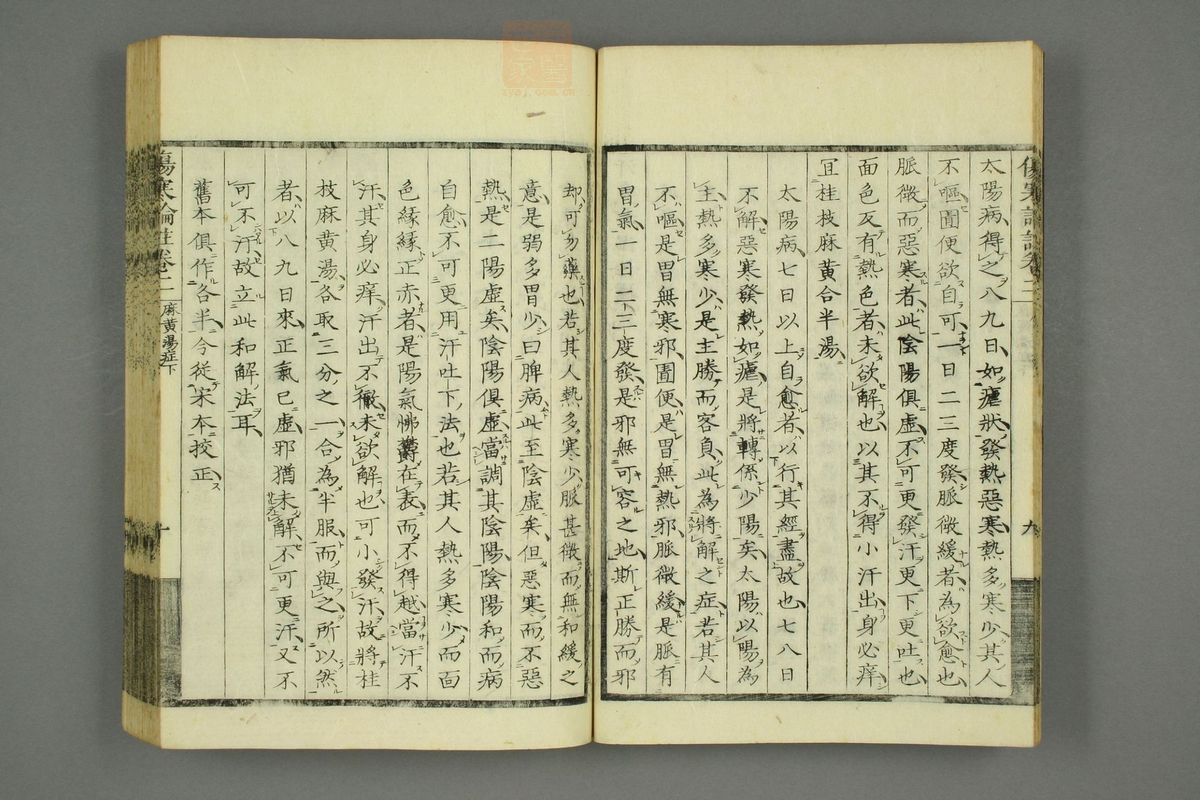 太陽病得之八九日如瘧狀發熱惡寒熱多寒少其人
不嘔圊便欲自可一日二三度發脈微緩者為欲愈也
脈微而惡寒者此陰陽俱虛不可更發汗更下更吐也
面色反有熱色者未欲解也以其不得小汗出身必痒
宜桂枝麻黄合半湯
太陽病七日以上自愈者以行其經盡故也七八日
不解惡寒發熱如瘧是將轉係少陽矣太陽以陽為
主熱多寒少是主勝而客負此為將解之症若其人
不嘔是胃無寒邪圊便是胃無熱邪脈微緩是脈有
胃氣一日二三度發是邪無可容之地斯正勝而邪
九
却可勿藥也若其人熱多寒少脈甚微而無和緩之
意是弱多胃少曰脾病此至陰虛矣但惡寒而不惡
熱是二陽虛矣陰陽俱虛當調其陰陽陰陽和而病
自愈不可更用汗吐下法也若其人熱多寒少而面
色緣緣正赤者是陽氣怫鬱在表而不得越當汗不
汗其身必痒汗出不徹未欲解也可小發汗故將桂
枝麻黄湯各取三分之一合為半服而與之所以然
者以八九日來正氣已虛邪猶未解不可更汗又不
可不汗故立此和解法耳
舊本俱作各半今從宋本挍正
傷寒論註卷二
麻黄湯症下
十